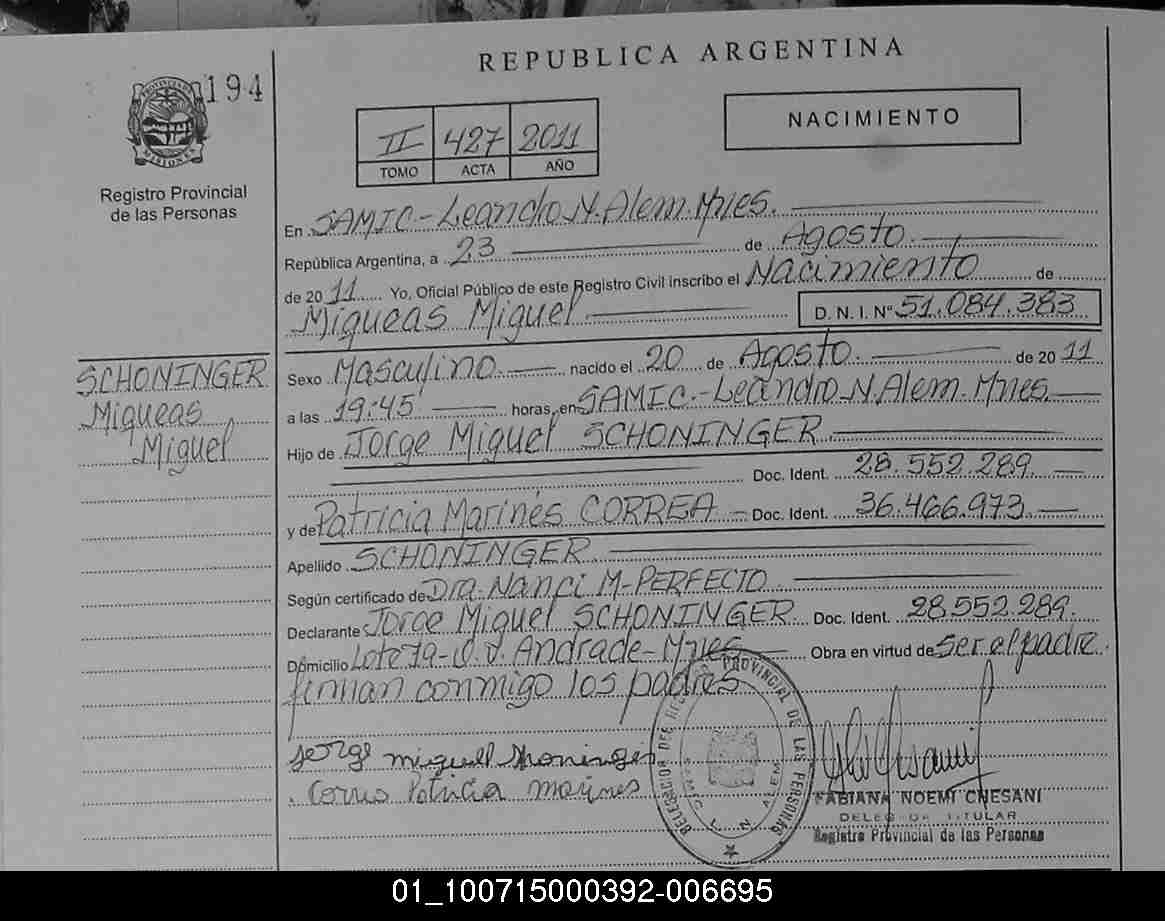 REPUBLICA ARGENTINA
194
PROVINCIA DE MISIONES
Registro Provincial
de las Personas
II 427 2011
TOMO ACTA AÑO
NACIMIENTO
En SAMIC-Leandro N. Alem. Mnes.
República Argentina, a 23 de Agosto
de 2011 Yo, Oficial Público de este Registro Civil inscribo el Nacimiento de
Miqueas Miguel D. N. I. Nº 51.084.383
SCHONINGER
Miqueas
Miguel
Sexo Masculino nacido el 20 de Agosto de 2011
a las 19:45 horas, en SAMIC.-Leandro N. Alem. Mnes.
Hijo de Jorge Miguel SCHONINGER
Doc. Ident. 28.552.289
y de Patricia Marinés CORREA Doc. Ident. 36.466.973
Apellido SCHONINGER
Según certificado de Dra. Nanci M. PERFECTO
Declarante Jorge Miguel SCHONINGER. Doc. Ident. 28.552.289.
Domicilio Lote 79- Andrade-Mnes Obra en virtud de Ser el padre.
firman conmigo los padres
Jorge miguel
Patricia
DELEGACION DEL REGISTRO PROVINCIAL DE LAS PERSONAS
SAMIC L. N. ALEM
FABIANA NOEMI CHESANI
DELEGADA TITULAR
Registro Provincial de las Personas
01_100715000392-006695